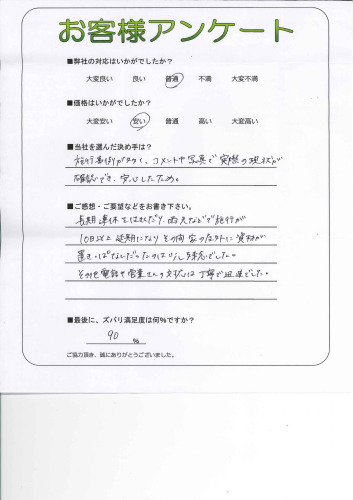 お客様アンケート
■弊社の対応はいかがでしたか?
大変良い 良い 普通 不満 大変不満
■価格はいかがでしたか?
大変安い 安い 普通 高い 大変高い
■当社を選んだ決め手は?
施行事例が多く、コメントや写真で実際の現状が
確認でき、安心したため。
■ご感想・ご要望などをお書き下さい。
長期連休をはさんだり、雨天などで施行が
10日以上延期になりその間家の左外に資材が
置きっぱなしだったのは少し残念でした。
その他電話や営業さんの対応は丁寧で迅速でした。
■最後に、ズバリ満足度は何%ですか?
90 %
ご協力頂き、誠にありがとうございました。